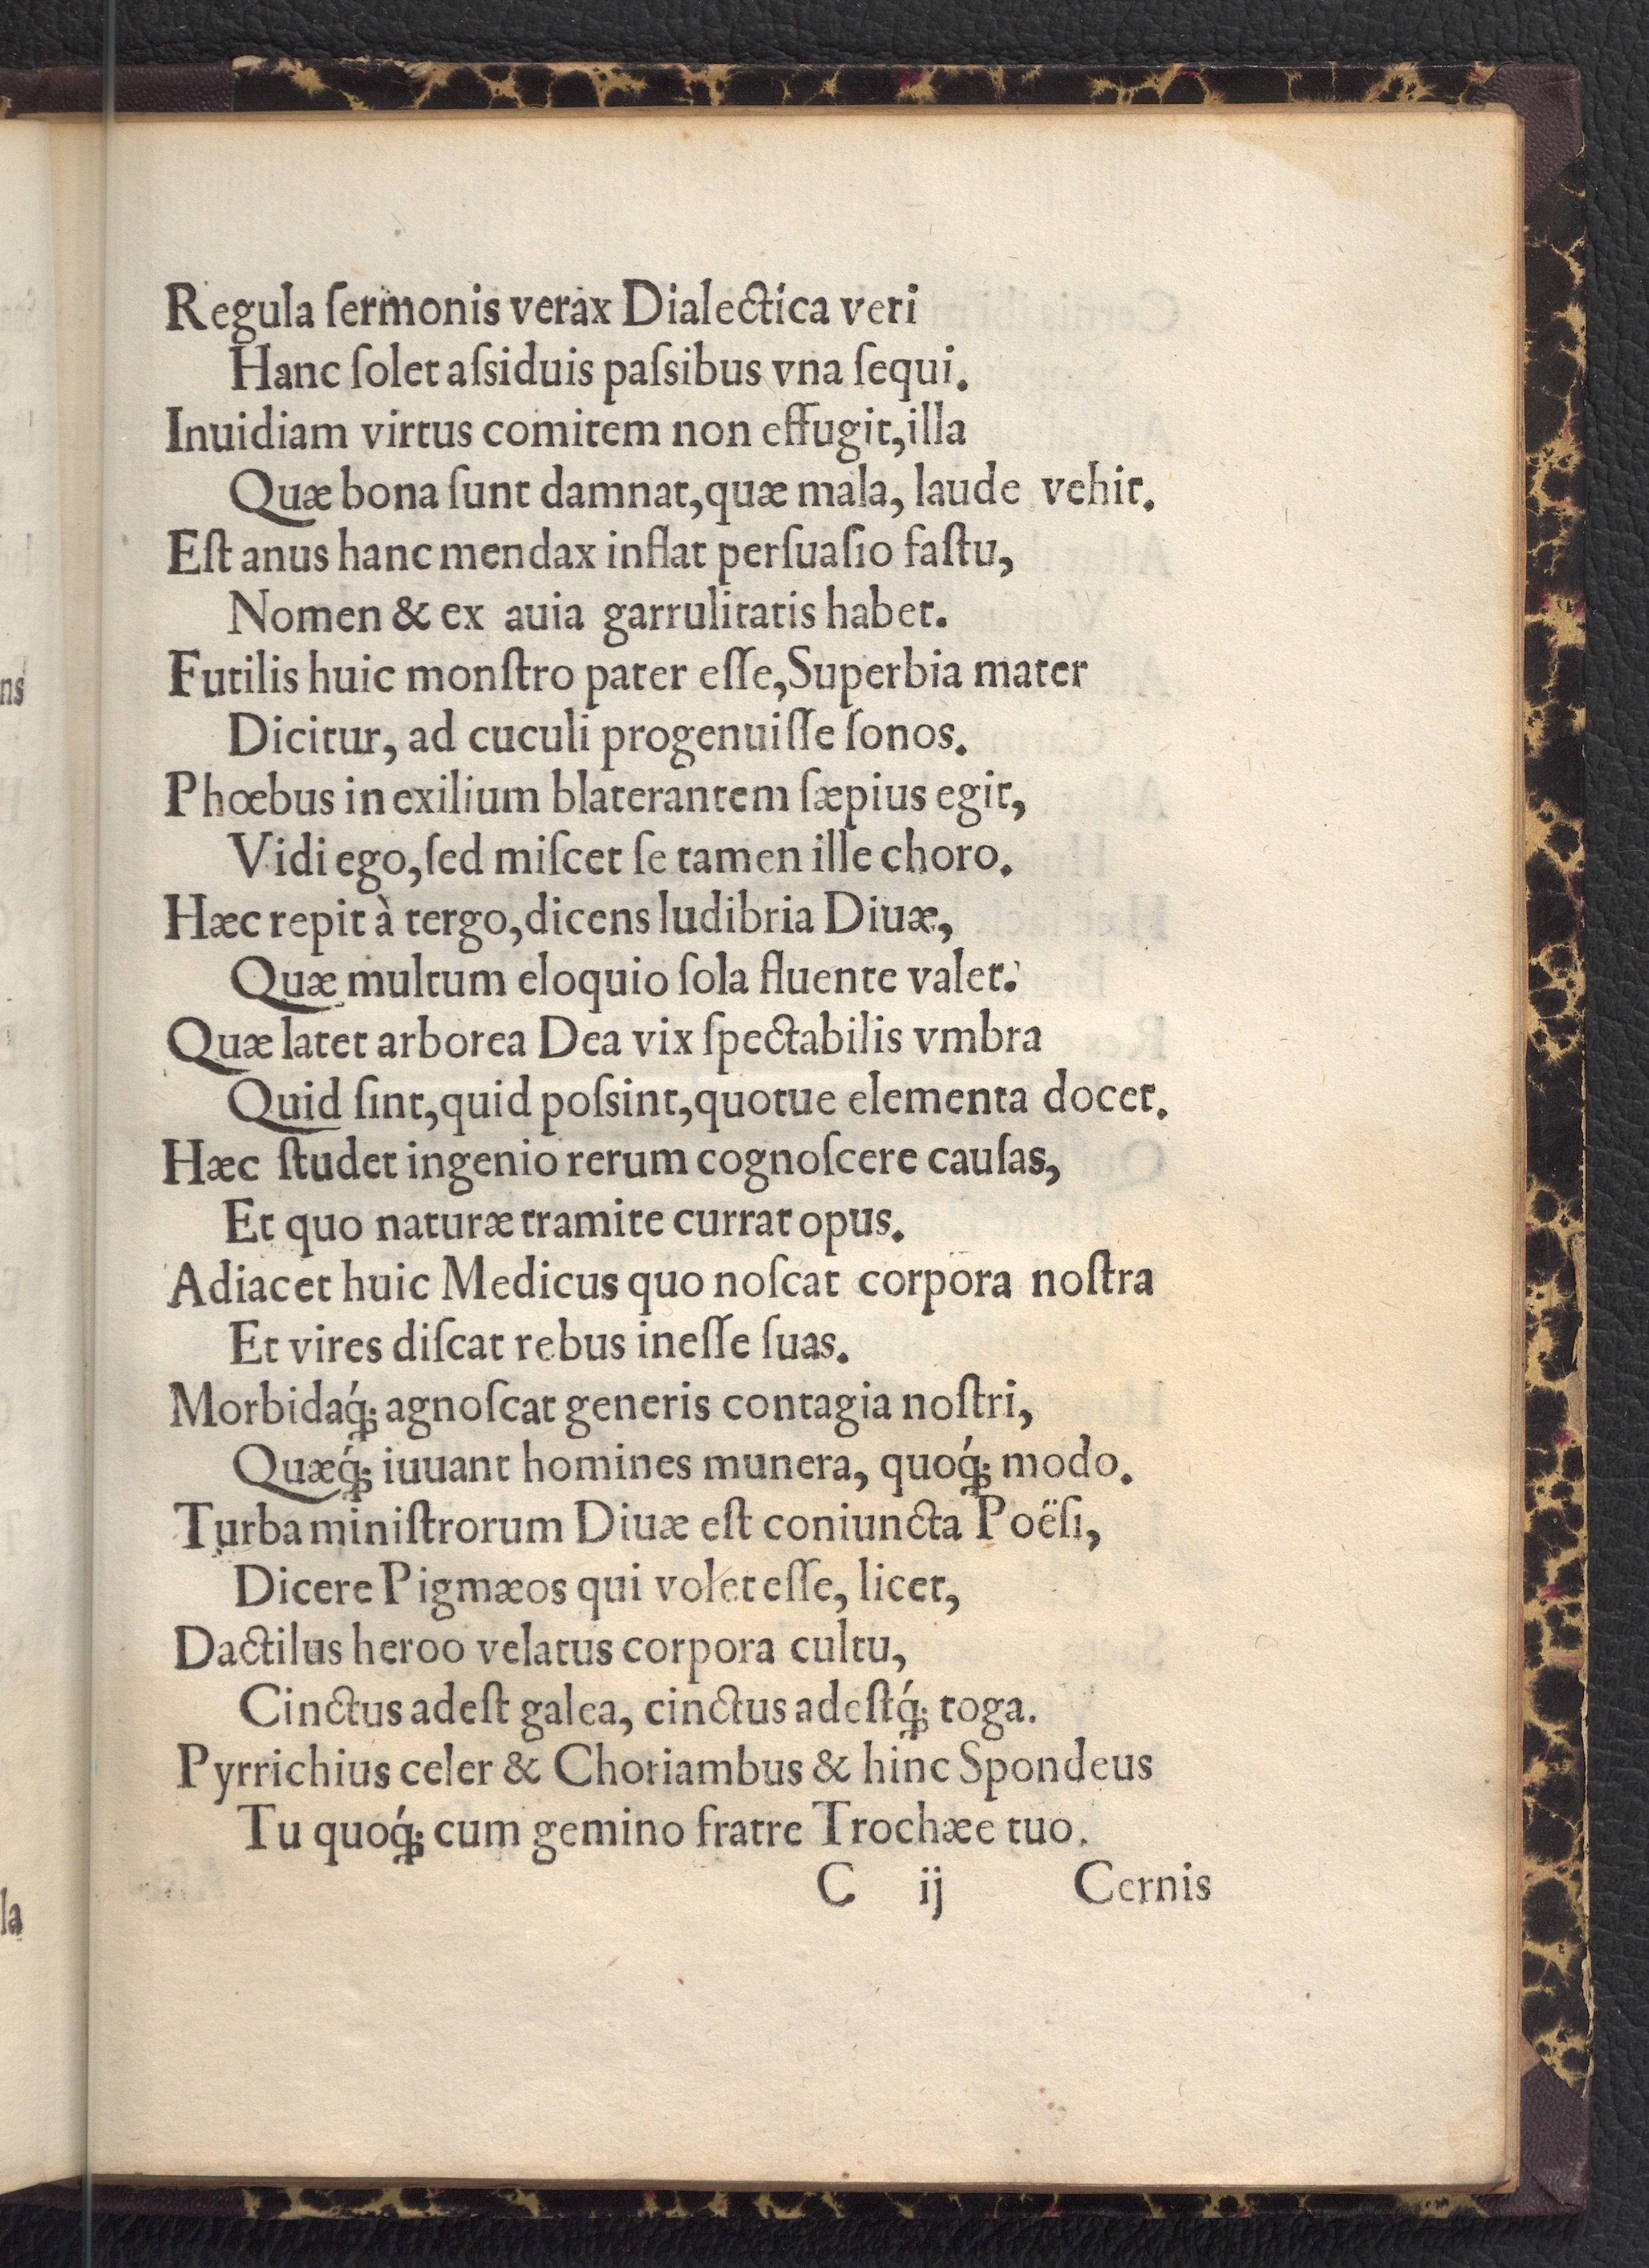 Regula ſermonis verax Dialectica veri
Hanc ſolet aſsiduis paſsibus vna ſequi.
Inuidiam virtus comitem non effugit, illa
Quæ bona ſunt damnat, quæ mala, laude vehit.
Eſt anus hanc mendax inflat perſuaſio faſtu,
Nomen & ex auia garrulitatis habet.
Futilis huic monſtro pater eſſe, Superbia mater
Dicitur, ad cuculi progenuiſſe ſonos.
Phœbus in exilium blaterantem ſæpius egit,
Vidi ego, ſed miſcet ſe tamen ille choro.
Hæc repit à tergo, dicens ludibria Diuæ,
Quæ multum eloquio ſola fluente valet.
Quæ latet arborea Dea vix ſpectabilis vmbra
Quid ſint, quid poſsint, quotue elementa docet.
Hæc ſtudet ingenio rerum cognoſcere cauſas,
Et quo naturæ tramite currat opus.
Adiacet huic Medicus quo noſcat corpora noſtra
Et vires diſcat rebus ineſſe ſuas.
Morbidaq́ꝫ agnoſcat generis contagia noſtri,
Quæq́ꝫ iuuant homines munera, quoq́ꝫ modo.
Turba miniſtrorum Diuæ eſt coniuncta Poëſi,
Dicere Pigmæos qui volet eſſe, licet,
Dactilus heroo velatus corpora cultu,
Cinctus adeſt galea, cinctus adeſtq́ꝫ toga.
Pyrrichius celer & Choriambus & hinc Spondeus
Tu quoq́ꝫ cum gemino fratre Trochæe tuo.
C ij Cernis
ns
la